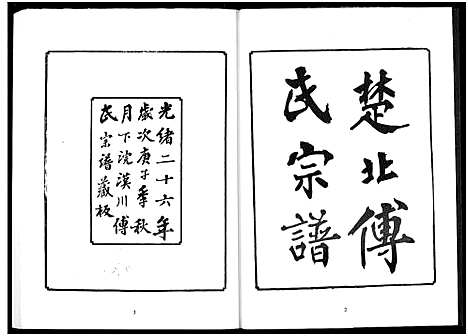 楚北傅
氏宗譜
光緒二十六年
歲次庚子季秋
月下浣漢川傅
氏宗譜藏板
1
2